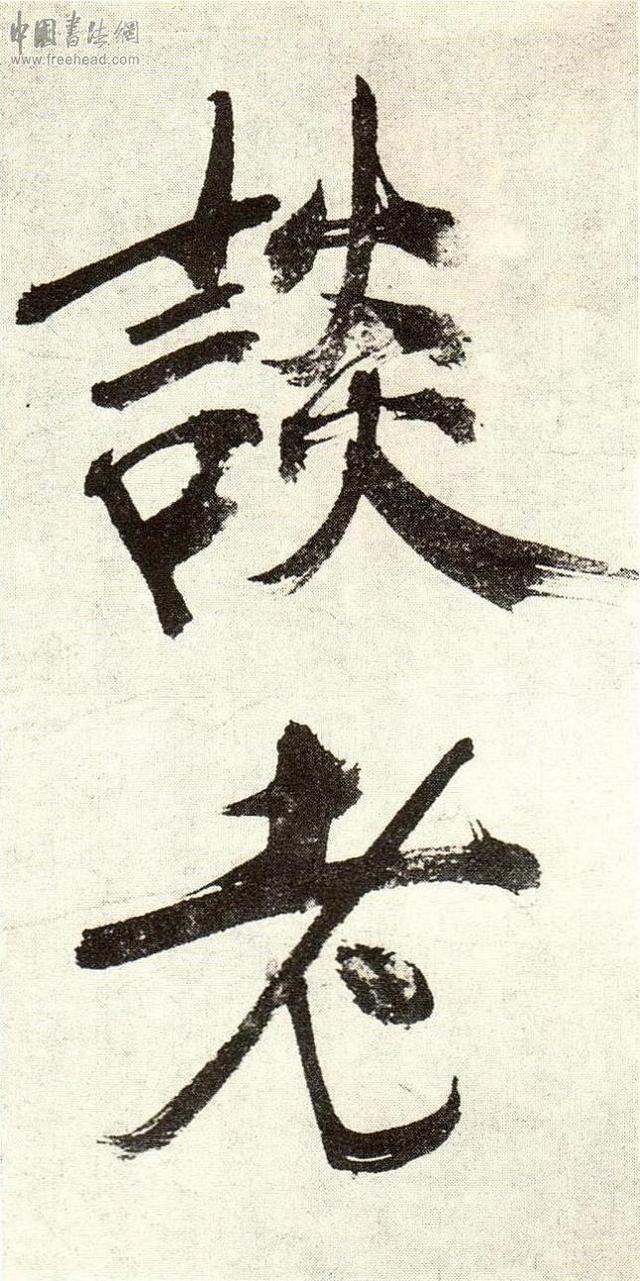 中国书法網
www.freehead.com
談
老